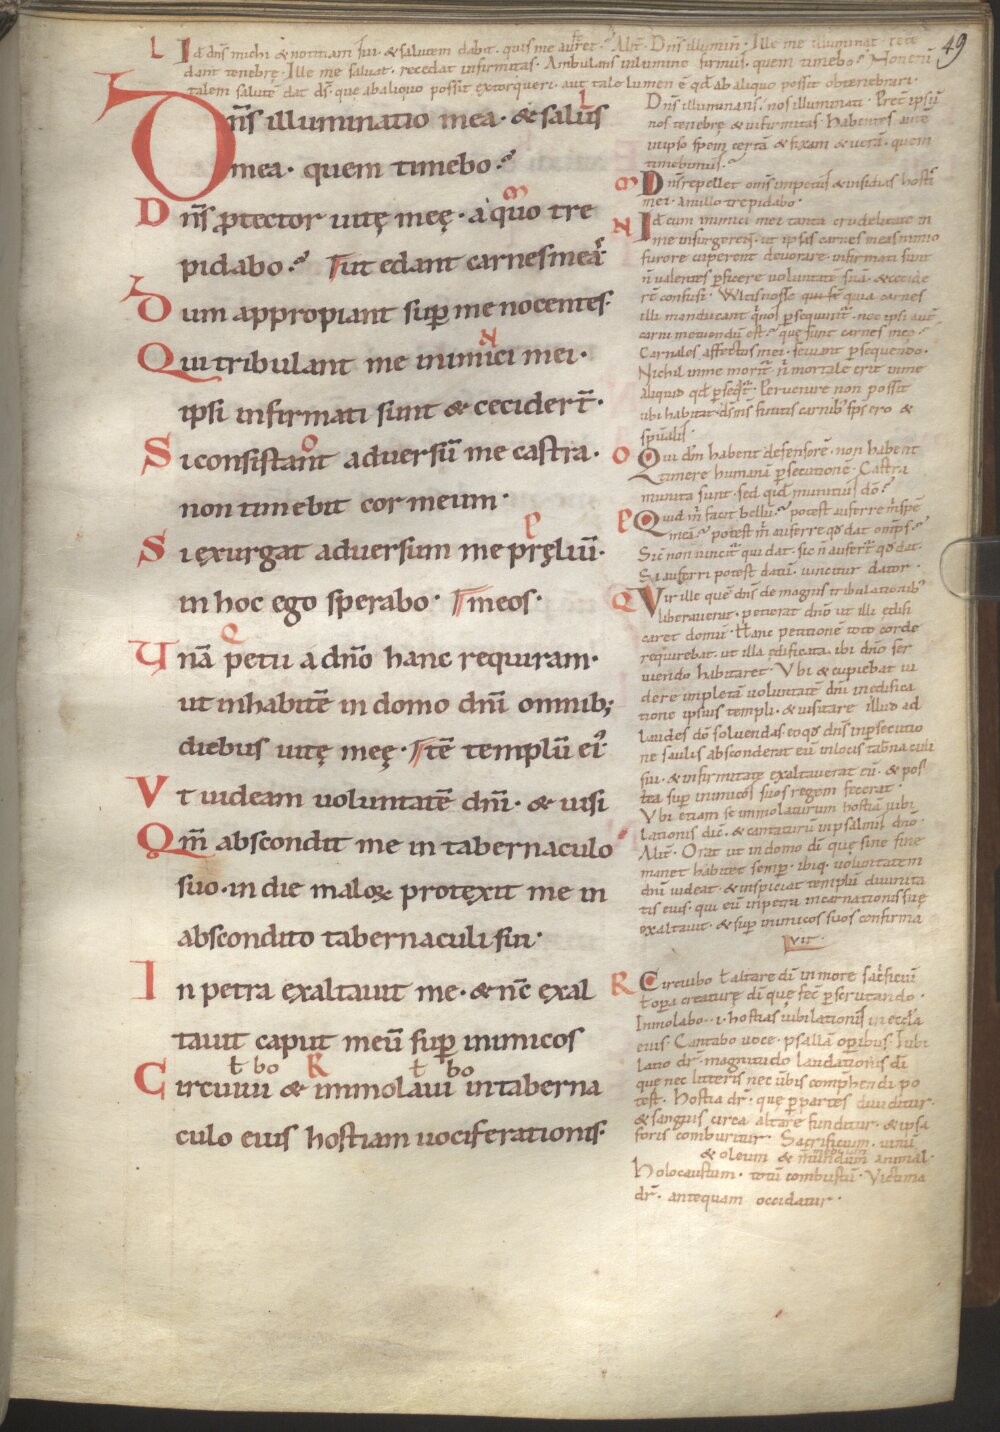 49
L Id dn̄s michi & notitiam sui · & salutem dabit · quis me auferet? Alit̄. Dn̄s illumin̄. Ille me illuminat · rece
dant tenebrę. Ille me saluat · recedat infirmitas. Ambulans in lumine firmus · quem timebo? Non eni
talem salutē dat ds̄ · que ab aliquo possit extorqueri · aut tale lumen ē qd̄ ab aliquo possit obtenebrari.
L
Dn̄s illuminatio mea · & salus
mea · quem timebo?
M
Dn̄s ꝓtector uitę meę · a quo tre
pidabo? ut edant carnes meas
Dum appropiant sup̄ me nocentes ·
N
Qui tribulant me inimici mei ·
ipsi infirmati sunt & cecider̄t ·
O
Si consistant aduersū me castra ·
non timebit cor meum ·
P
Si exurgat aduersum me pręliū ·
in hoc ego sperabo · meos ·
Q
Unā petii a dn̄o hanc requiram ·
ut inhabitē in domo dn̄i omnib;
diebus uitę meę · tē templū ei᷒
Vt uideam uoluntatē dn̄i · & uisi
Qm̄ abscondit me in tabernaculo
suo · in die maloꝝ protexit me in
abscondito tabernaculi sui ·
In petra exaltauit me · & nc̄ exal
tauit caput meū sup̄ inimicos
ł bo R ł bo
Circuiui & immolaui in taberna
culo eius hostiam uociferationis ·
Dn̄s illuminans · nos illuminati · Pret̄ ipsū
nos tenebrę & infirmitas · habentes aute
in ipso spem certā & fixam & uerā · quem
timebimus?
M Dn̄s repellet om̄s impetus & insidias hosti
mei · a nullo trepidabo ·
N Id cum inimici mei tanta crudelitate in
me insurgerent · ut ipsis carnes meas nimio
furore cuperent deuorare · infirmati sunt
n̄ ualentes ꝑficere uoluntatē suā · & cecide
rt̄ confusi · quia carnes
illi manducant · nec ipsi aut̄
carni metuendū est · quę sunt carnes meę?
Carnales affectus mei · seuiant ꝑsequendo ·
Nichil in me morit̄ n̄ mortale erit in me
aliquid qd̄ ꝑseq̄t̄ · Peruenire non possit
ubi habitat ds̄ finitis carnib᷒ ero &
spualis ·
O Qui dn̄m habent defensorē · non habent
timere humanā ꝑsecutionē · Castra
munita sunt · sed quid munitius dō?
P Quid m̄ facit bellū? potest auferre m̄ spē
meā? potest m̄ auferre qd̄ dat omps̄?
Sic non uincit̄ qui dat · sic n̄ aufert̄ qd̄ dat ·
Si auferri potest datū · uincitur dator ·
Q Vir ille quē dn̄s de magnis tribulationib᷒
liberauerat · petierat dn̄o ut illi edifi
caret domū · Hanc petitionē toto corde
requirebat · ut illa edificata · ibi dn̄o ser
uiendo habitaret · Vbi & cupiebat ui
dere impletā uoluntatē dn̄i in edifica
tione ipsius templi · & uisitare illud ad
laudes dō soluendas · eo qd̄ dn̄s in ꝑsecutio
ne saulis absconderat eū in locis tab̄naculi
sui · & infirmitate exaltauerat eū · & pos
tea sup̄ inimicos suos regem fecerat ·
Vbi etiam se immolaturum hostiā iubi
lationis dic̄ · & cantaturū in psalmis dn̄o ·
Alit̄ · Orat ut in domo di que sine fine
manet habitet semp̄ · ibiq; uoluntatem
dn̄i uideat · & inspiciat templū diuinita
tis eius · qui eū in petra incarnationis suę
exaltauit · & sup̄ inimicos suos confirma
uit ·
R Circuibo ł altare di in more sac̄ficii
ł oꝑa creaturę di quę fec̄ ꝑscrutando ·
Inmolabo · i · hostias iubilationis in eccła
eius · Cantabo uoce · psallā oꝑibus · Iubi
latio dr̄ · magnitudo laudationis di
que nec litteris nec ūbis comp̄hendi po
test · Hostia dr̄ · quę ꝑ partes diuiditur ·
& sanguis circa altare funditur · & ipsa
foris comburitur · Sacrificium · uinū
& oleum & mundum animal ·
Holocaustum · totū combustū · Victima
dr̄ · antequam occidatur ·